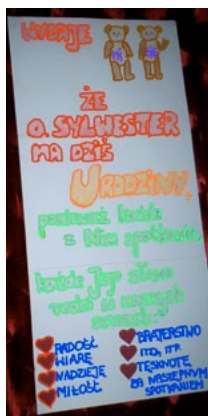 WYDAJE
MI SIĘ
ŻE
O. SYLWESTER
MA DZIŚ
URODZINY,
ponieważ każde
z Nim spotkanie,
każde Jego słowo
rodzi w naszych
sercach...
RADOŚĆ
WIARĘ
NADZIEJĘ
MIŁOŚĆ
BRATERSTWO
ITD., ITP.
TĘSKNOTĘ
ZA NASTĘPNYM
SPOTKANIEM